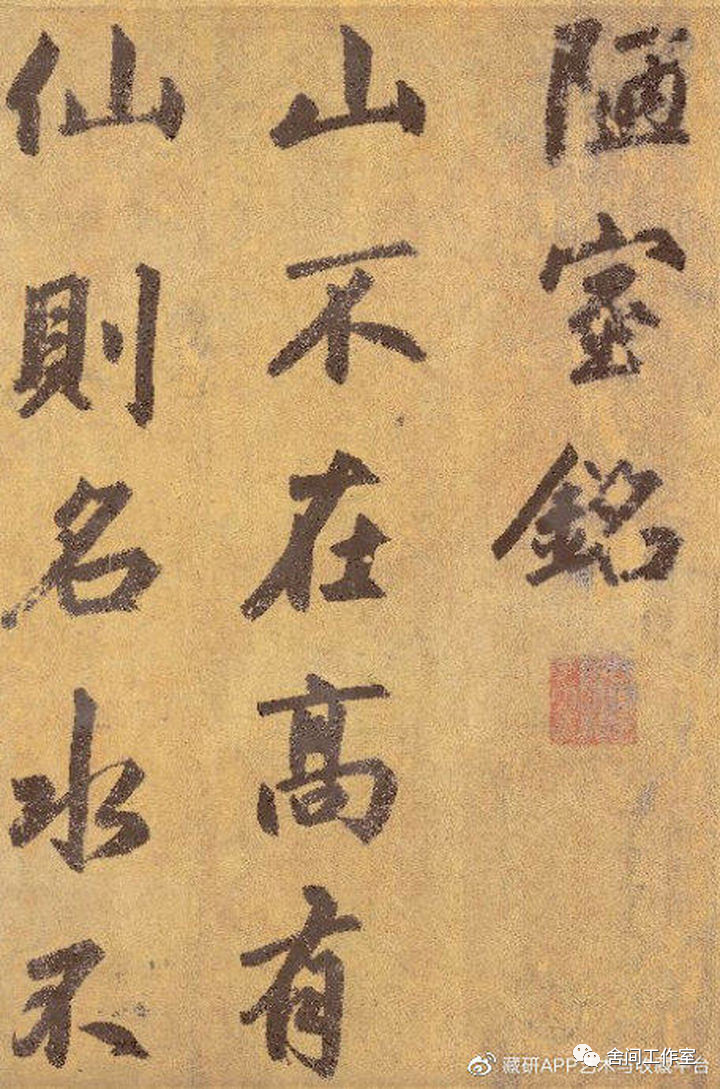 陋室銘
山不在高有
仙則名水不
舍间工作室
藏研APP艺术与收藏平台